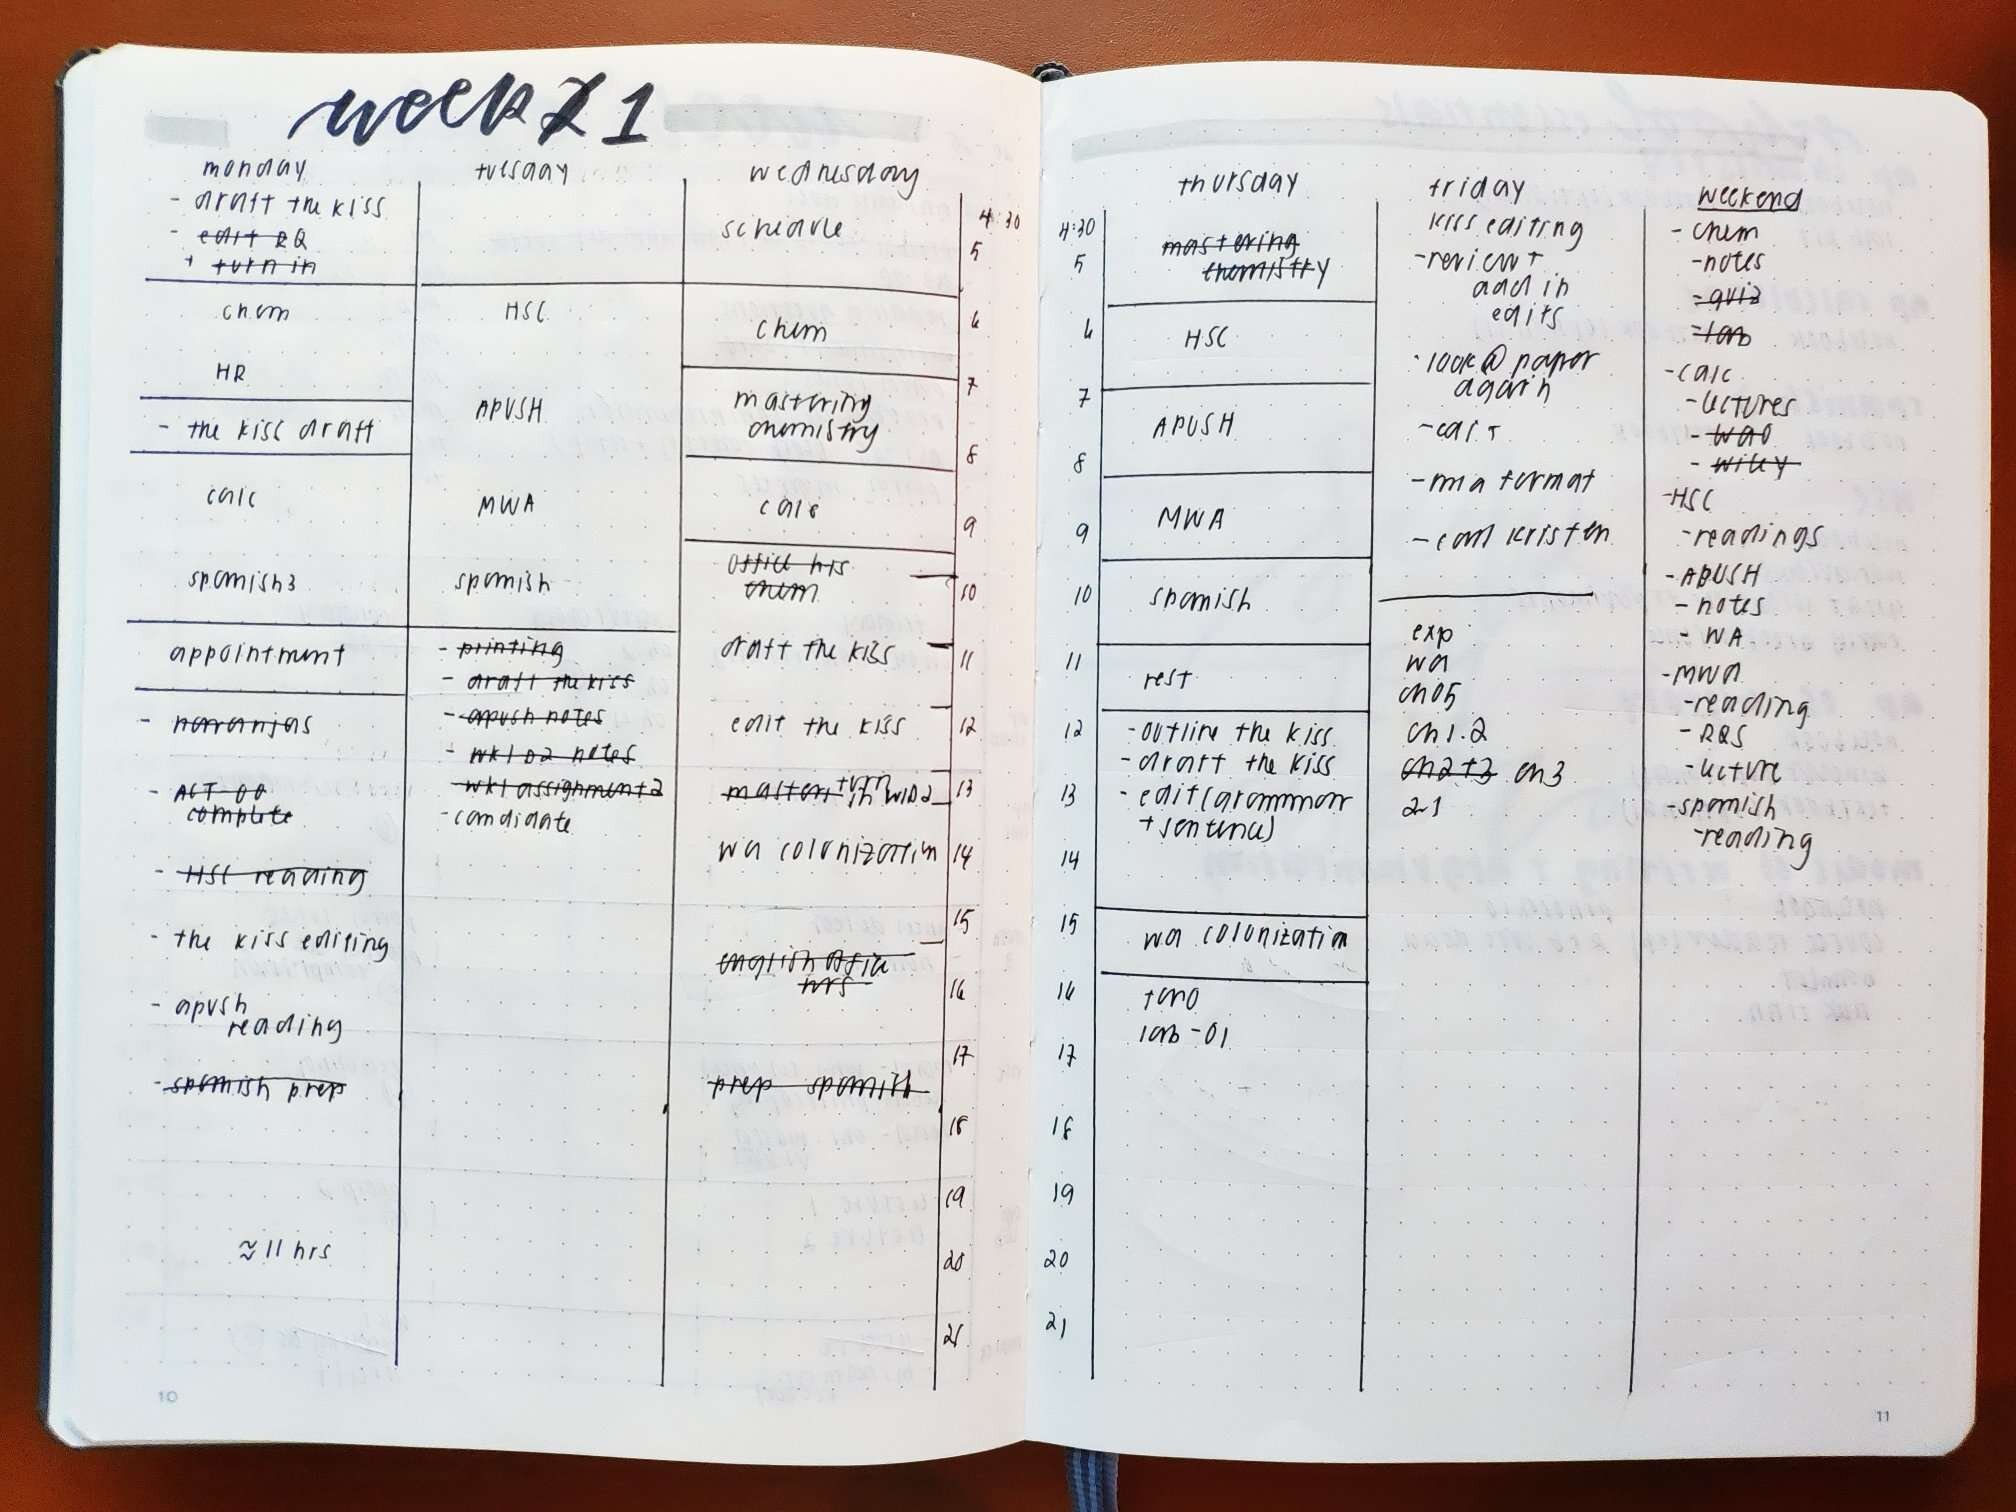 week 1
monday
- draft the kiss
- edit RQ
+ turn in
chem
HR
- the kiss draft
calc
spanish3
appointment
- naranjas
- ACT 00
complete
- HSC reading
- the kiss editing
- apush
reading
- spanish prep
≈ 11 hrs
10
tuesday
HSC
APUSH
MWA
spanish
- printing
- draft the kiss
- apush notes
- wk1 D2 notes
- wk1 assignment 2
- candidate
wednesday
schedule
chem
mastering
chemistry
calc
office hrs
chem
draft the kiss
edit the kiss
turn
in W1D2
wa colonization
english office
hrs
prep spanish
4:30
5
6
7
8
9
10
11
12
13
14
15
16
17
18
19
20
21
4:30
5
6
7
8
9
10
11
12
13
14
15
16
17
18
19
20
21
thursday
mastering
chemistry
HSC
APUSH
MWA
spanish
rest
- outline the kiss
- draft the kiss
- edit (grammar
+ sentence)
wa colonization
lab-01
friday
kiss editing
- review +
add in
edits
- look @ paper
again
- edit
- mla format
- call kristen
exp
wa
ch05
ch1.2
ch2+3 ch3
2.1
weekend
- chem
- notes
- quiz
- lab
- calc
- lectures
- wao
- wiley
- HSC
- readings
- APUSH
- notes
- WA
- mwa
- reading
- RQS
- lecture
- spanish
- reading
11